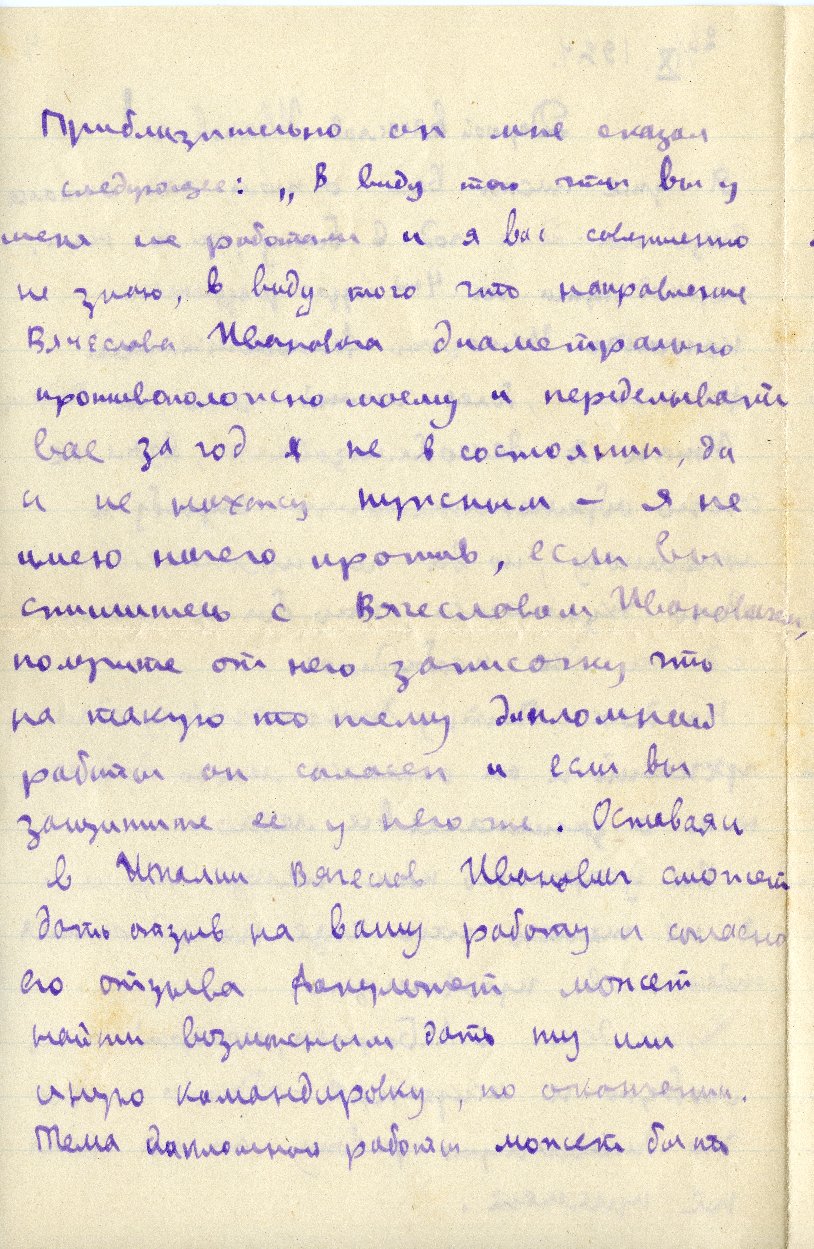 Приблизительно он мне сказал
следующее: „В виду того что вы у
меня не работали и я вас совершенно
не знаю, в виду того что направление
Вячеслава Ивановича диаметрально
противоположно моему и переделывать
вас за год я не в состоянии, да
и не нахожу нужным — я не
имею ничего против, если вы
спишитесь с Вячеславом Ивановичем,
получите от него записочку что
на такую то тему дипломной
работы он согласен и если вы
защитите ее у него же. Оставаясь
в Италии Вячеслав Иванович сможет
дать отзыв на вашу работу и согласно
его отзыва факультет может
найти возможным дать ту или
иную командировку, по окончании.
Тема дипломной работы может быть